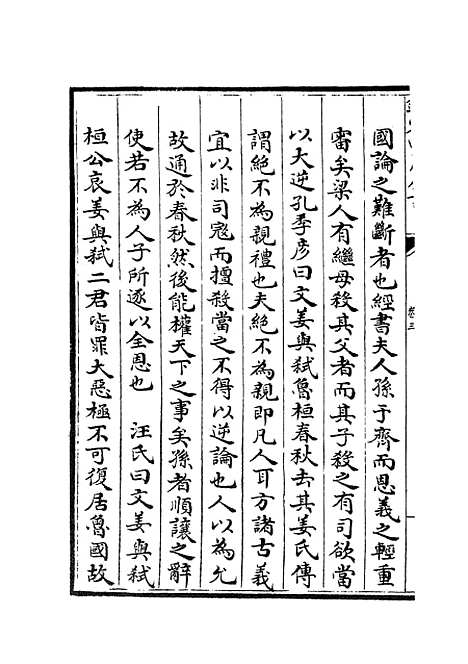 國論之難斷者也經書夫人孫于齊而恩義之輕重
審矣梁人有繼母殺其父者而其子殺之有司欲當
以大逆孔季彥曰文姜與弒魯桓春秋去其姜氏傳
謂絕不為親禮也夫絕不為親即凡人耳方諸古義
宜以非司寇而擅殺當之不得以逆論也人以為允
故通於春秋然後能權天下之事矣孫者順讓之辭
使若不為人子所逐以全恩也　汪氏曰文姜與弒
桓公哀姜與弒二君皆罪大惡極不可復居魯國故
卷三